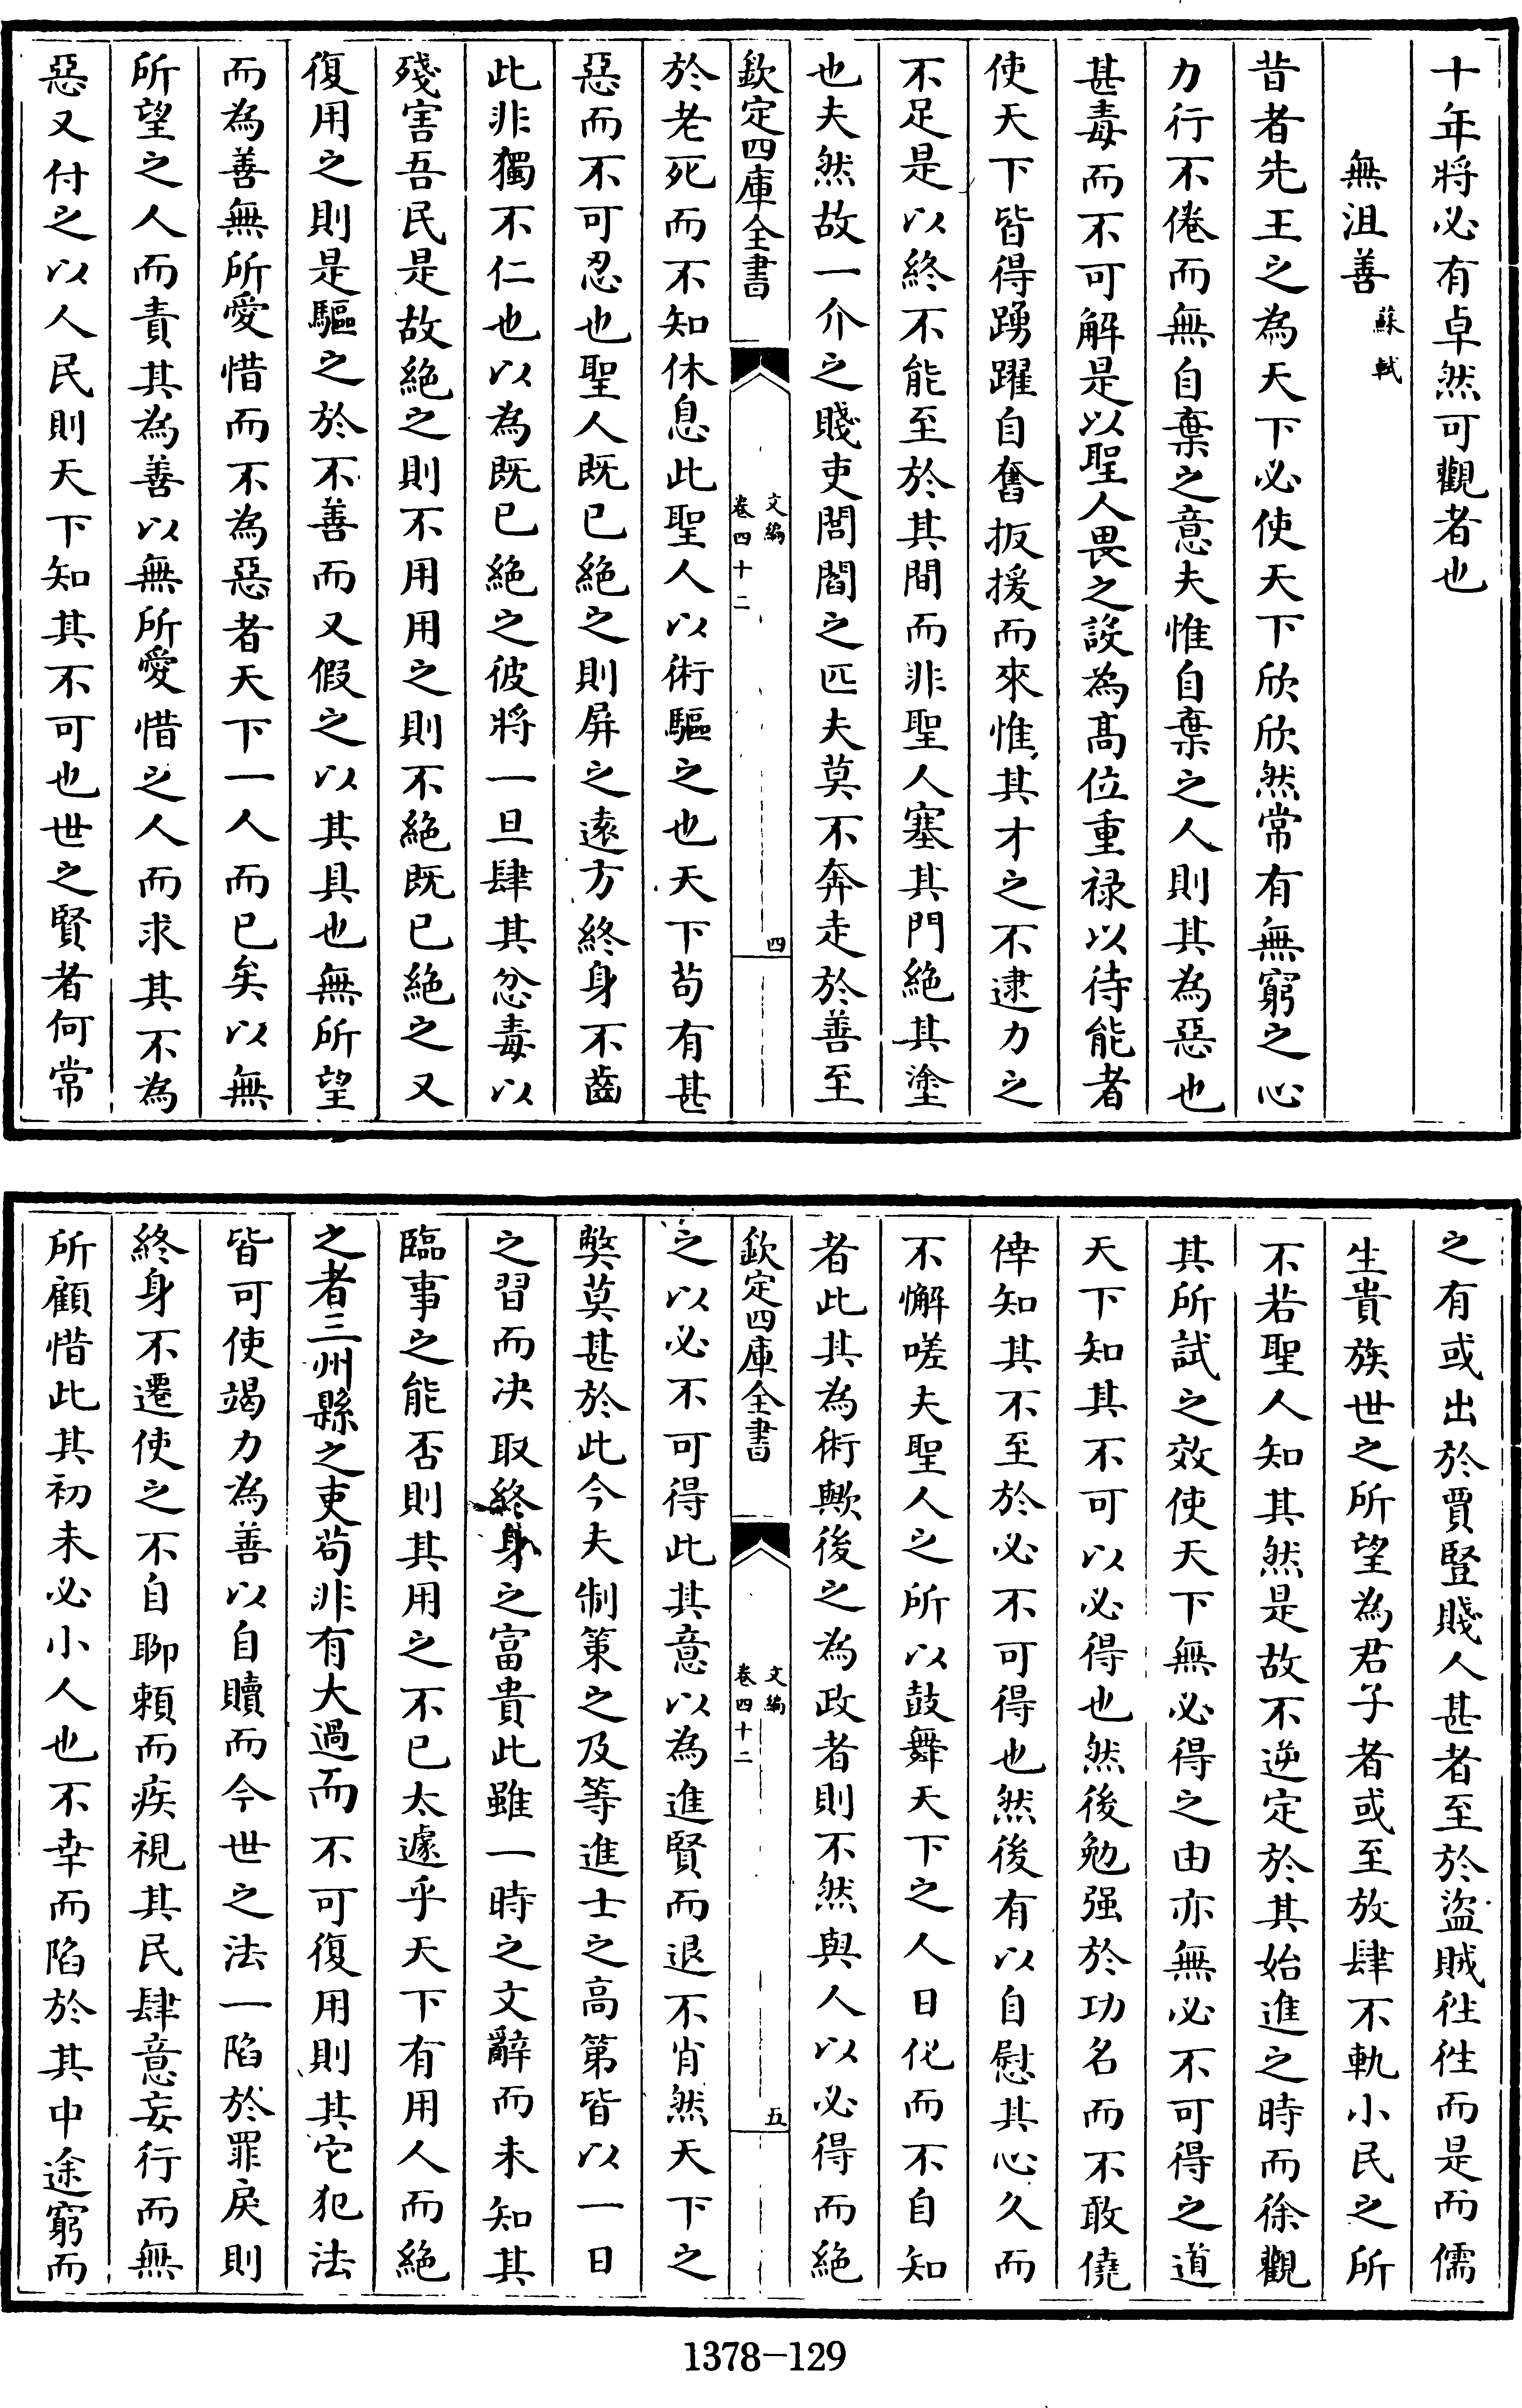 十年將必有卓然可觀者也
無沮善
蘇軾
昔者先王之為天下必使天下欣欣然常有無窮之心
力行不倦而無自棄之意夫惟自棄之人則其為惡也
甚毒而不可解是以聖人畏之設為高位重禄以待能者
使天下皆得踴躍自奮扳援而來惟其才之不逮力之
不足是以終不能至於其間而非聖人塞其門絶其塗
也夫然故一介之賤吏閭閻之匹夫莫不奔走於善至
欽定四庫全書
文編
卷四十二
四
於老死而不知休息此聖人以術驅之也天下苟有甚
惡而不可忍也聖人既已絶之則屏之逺方終身不齒
此非獨不仁也以為既已絶之彼將一旦肆其忿毒以
殘害吾民是故絶之則不用用之則不絶既已絶之又
復用之則是驅之於不善而又假之以其具也無所望
而為善無所愛惜而不為惡者天下一人而已矣以無
所望之人而責其為善以無所愛惜之人而求其不為
惡又付之以人民則天下知其不可也世之賢者何常
之有或出於賈豎賤人甚者至於盜賊徃徃而是而儒
生貴族世之所望為君子者或至放肆不軌小民之所
不若聖人知其然是故不逆定於其始進之時而徐觀
其所試之效使天下無必得之由亦無必不可得之道
天下知其不可以必得也然後勉强於功名而不敢僥
倖知其不至於必不可得也然後有以自慰其心久而
不懈嗟夫聖人之所以鼓舞天下之人日化而不自知
者此其為術歟後之為政者則不然與人以必得而絶
欽定四庫全書
文編
卷四十二
五
之以必不可得此其意以為進賢而退不肖然天下之
弊莫甚於此今夫制策之及等進士之高第皆以一日
之習而决取終身之富貴此雖一時之文辭而未知其
臨事之能否則其用之不已太遽乎天下有用人而絶
之者三州縣之吏苟非有大過而不可復用則其它犯法
皆可使竭力為善以自贖而今世之法一陷於罪戾則
終身不遷使之不自聊賴而疾視其民肆意妄行而無
所顧惜此其初未必小人也不幸而陷於其中途窮而
1378-129